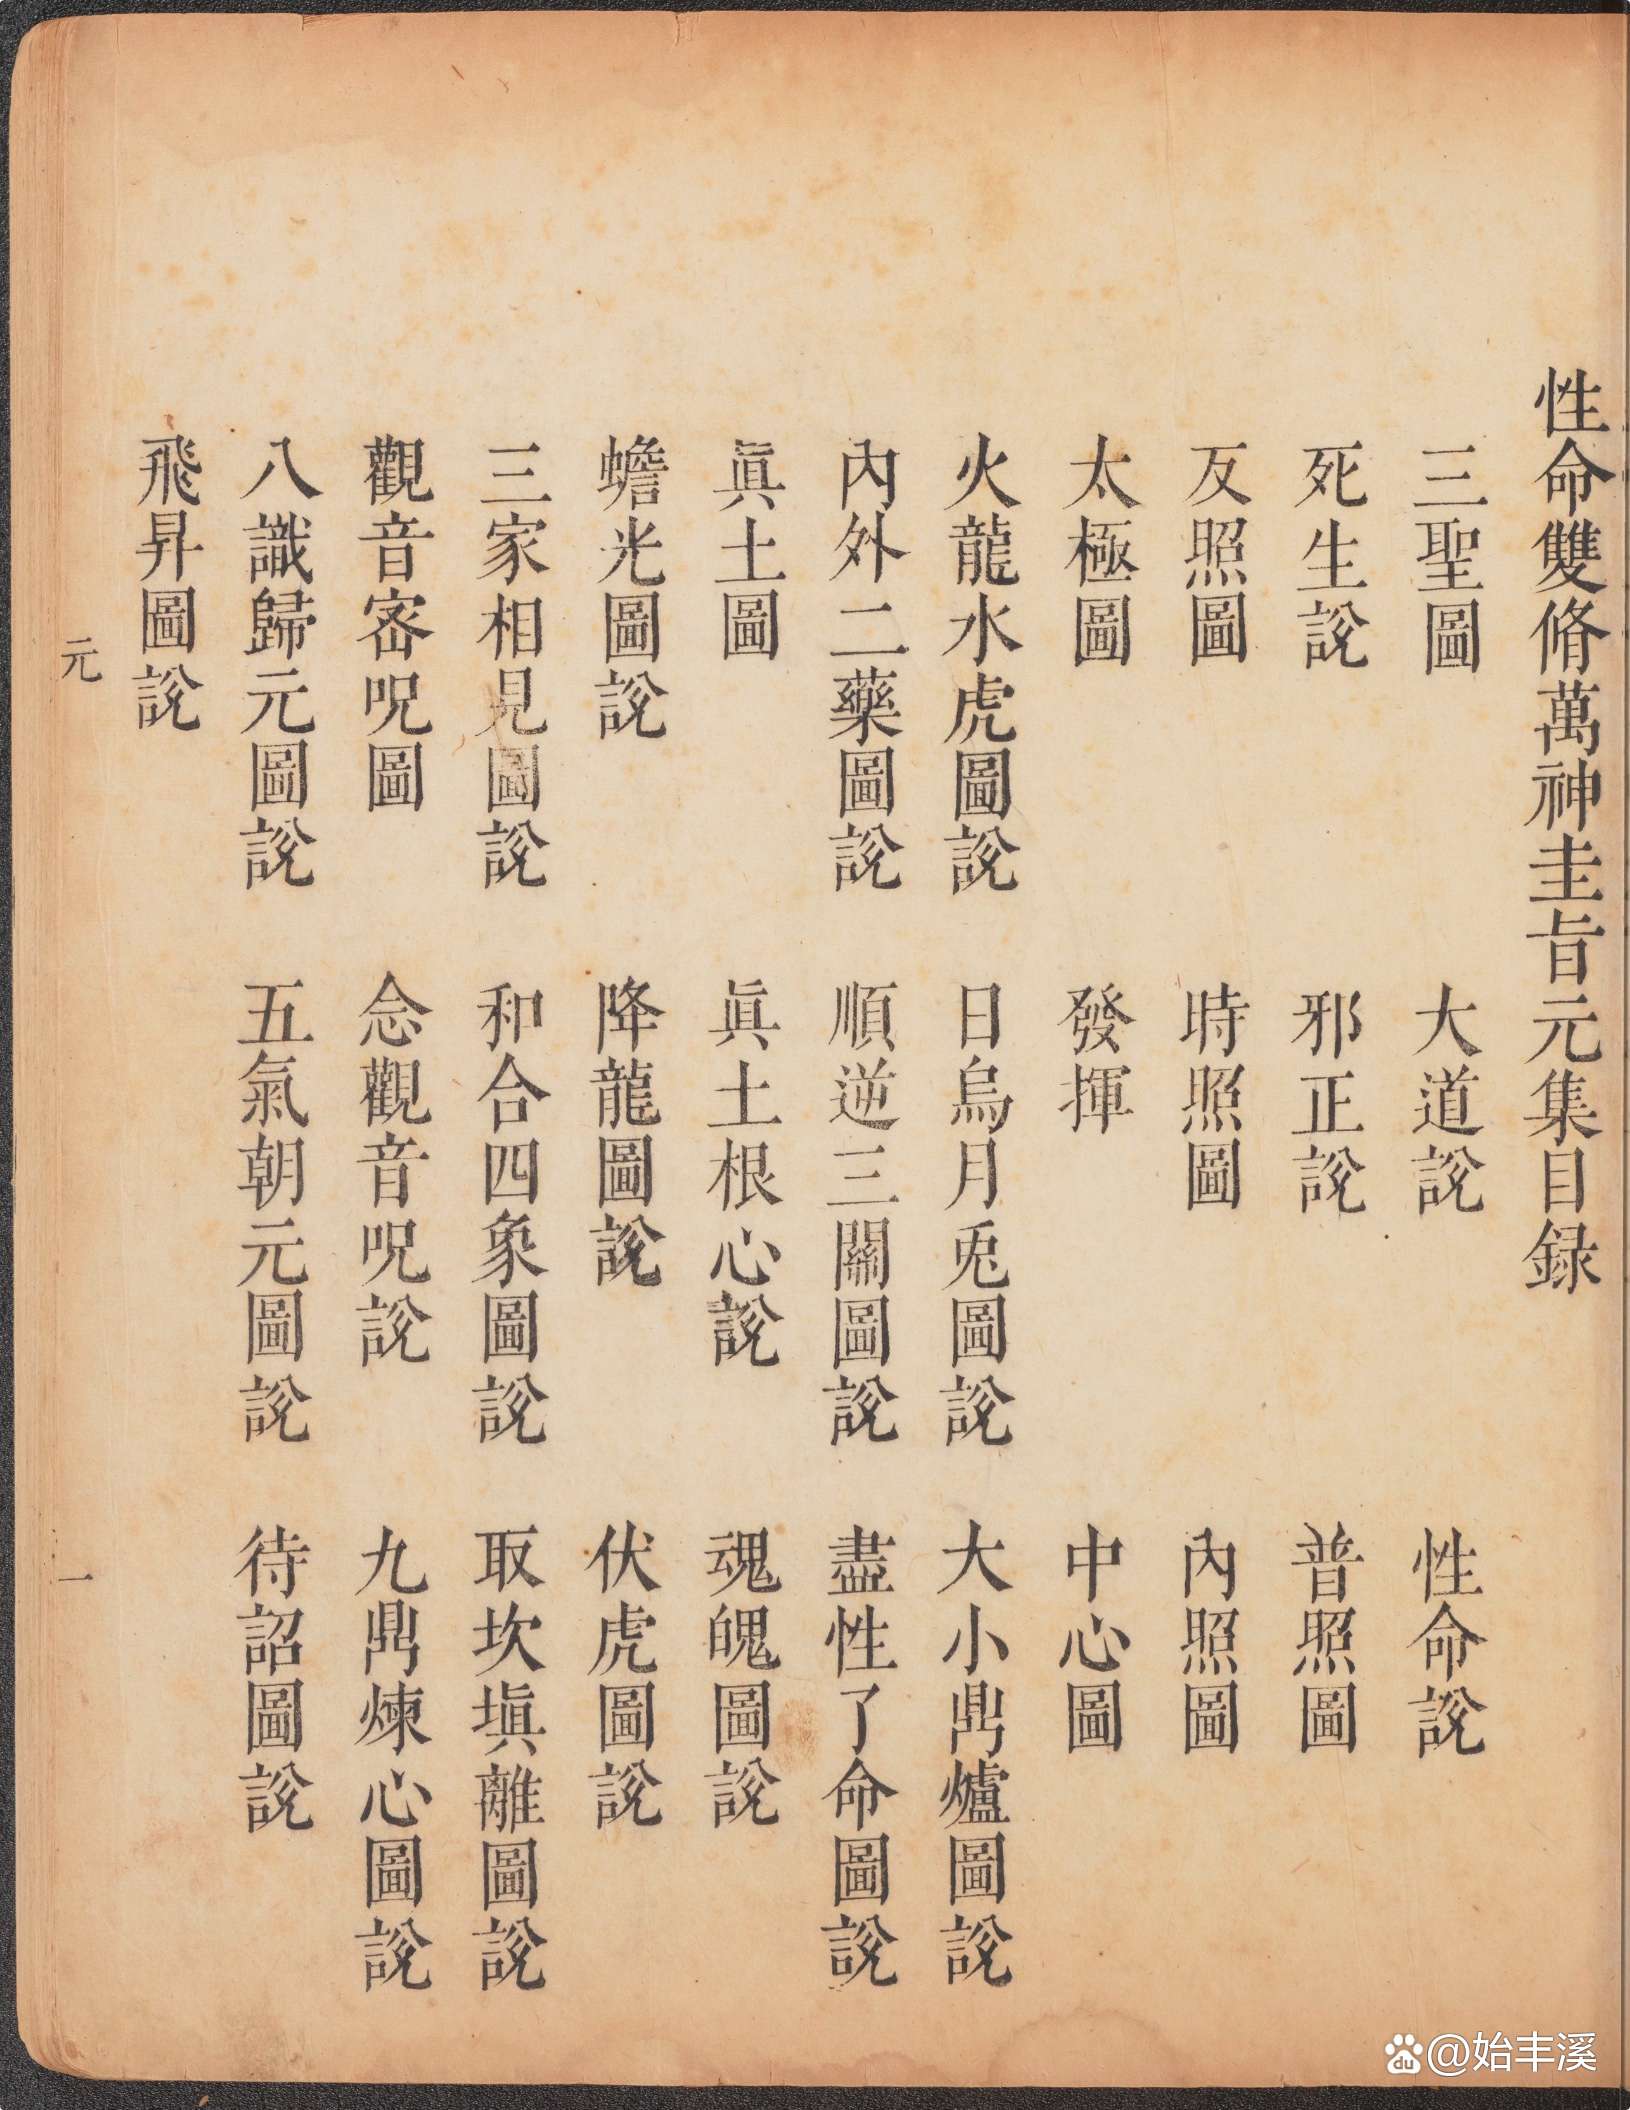 性命雙脩萬神圭旨元集目録
三聖圖　大道說　性命說
死生說　邪正說　普照圖
反照圖　時照圖　內照圖
太極圖　發揮　中心圖
火龍水虎圖說　日烏月兎圖說　大小鼎爐圖說
內外二藥圖說　順逆三關圖說　盡性了命圖說
眞土圖　眞土根心說　魂魄圖說
蟾光圖說　降龍圖說　伏虎圖說
三家相見圖說　和合四象圖說　取坎塡離圖說
觀音密呪圖　念觀音呪說　九鼎煉心圖說
八識歸元圖說　五氣朝元圖說　待詔圖說
飛昇圖說
元　一
@始丰溪